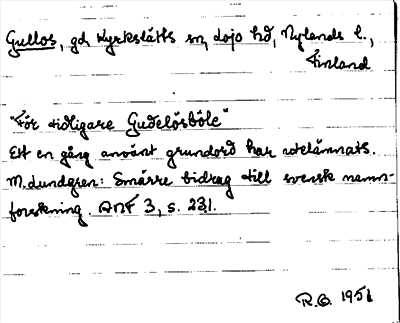 Gullos, gd, Kyrkslätts sn, Lojo hd, Nylands l.,
Finland
"För tidligare Gudelösböle"
Ett en gång använt grundord har utelämnats.
M. Lundgren: Smärre bidrag till svensk namn-
forskning. ANF 3, s. 231.
R.O. 1951